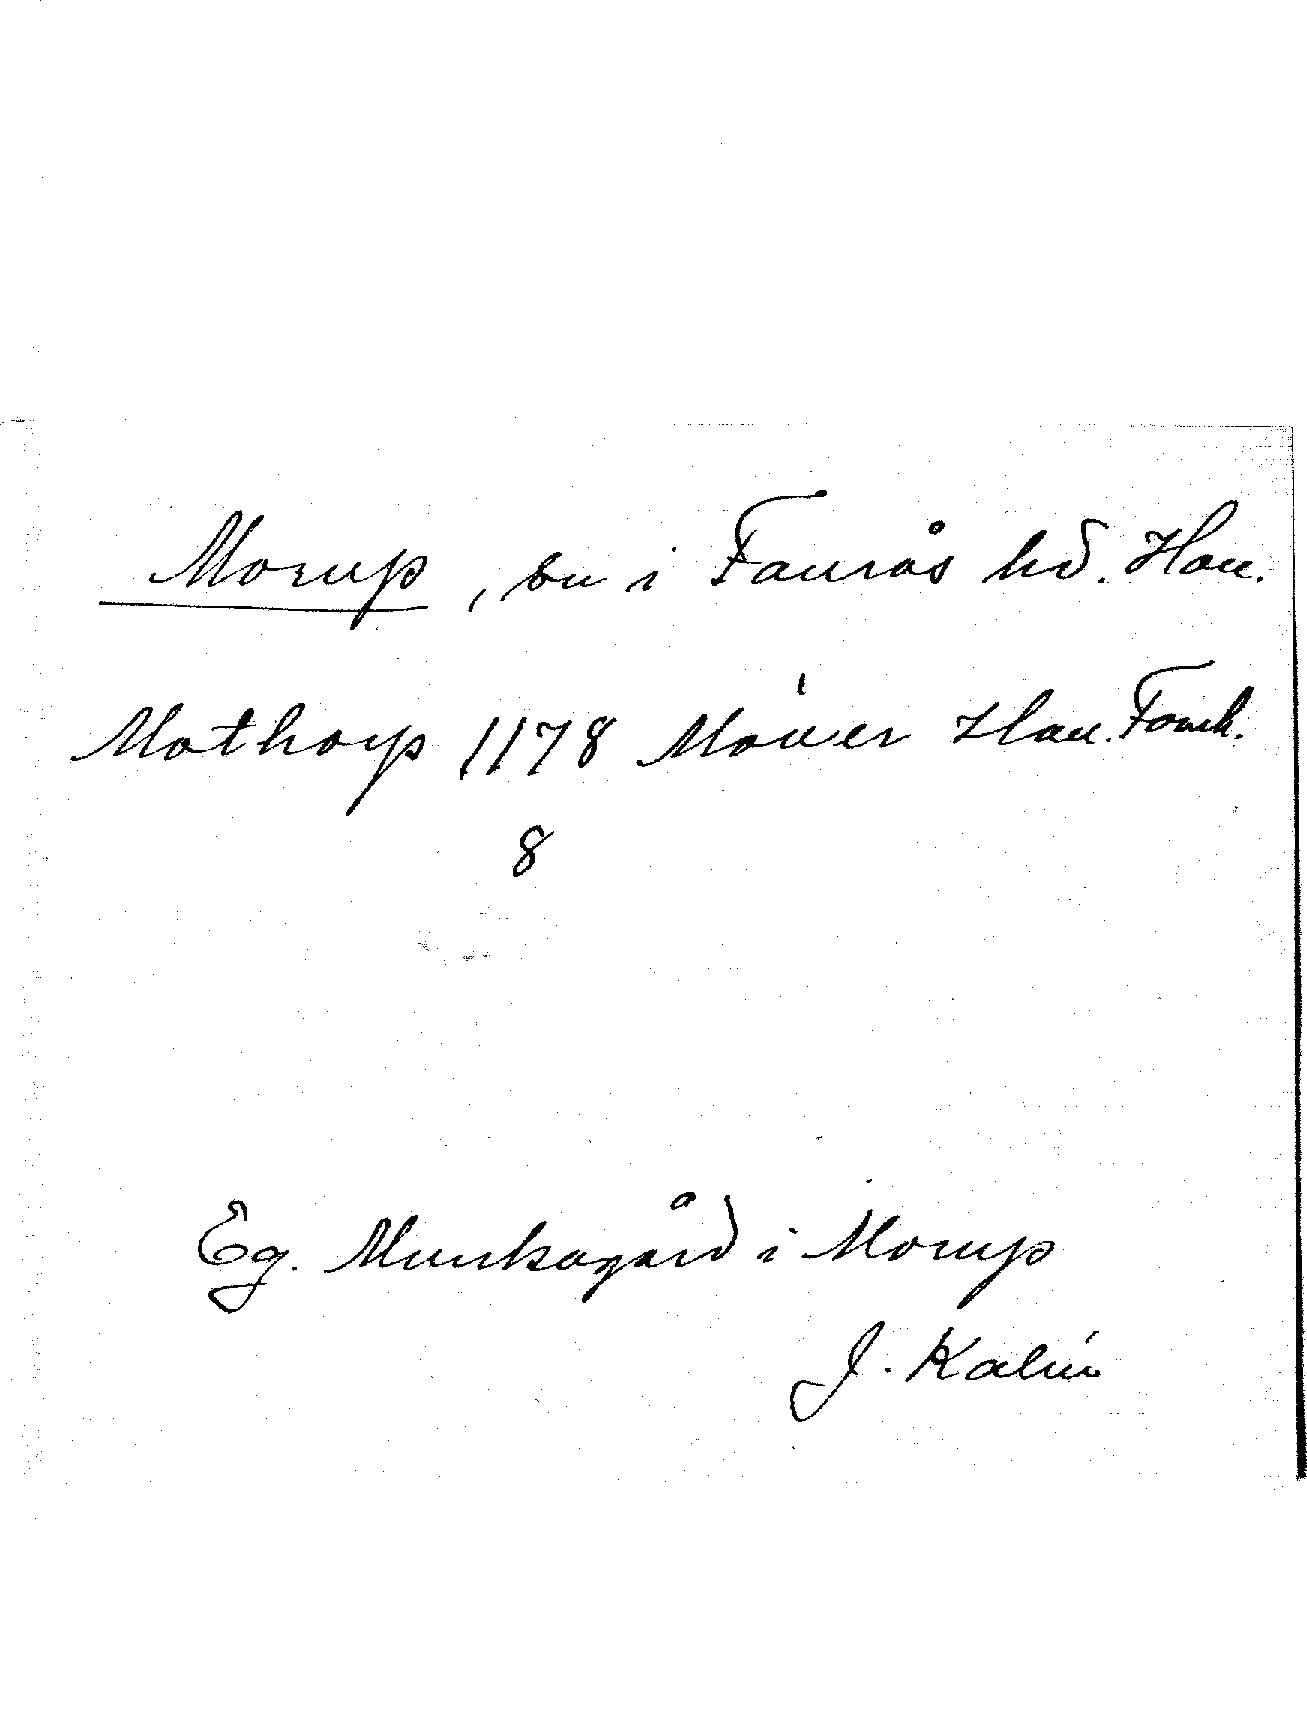 Morup, sn i Faurås hd. Hall.
Mothorp 1178 Hall.
8
Eg. Munkagård i Morup
J. Kalén